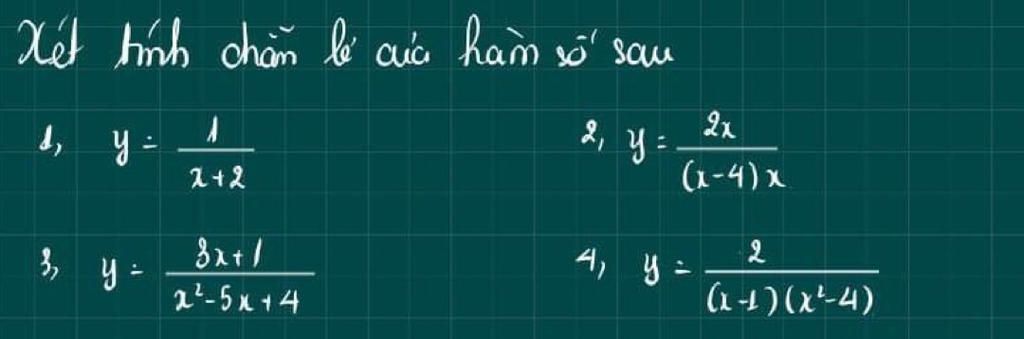 Xét tính chẵn lẻ của hàm số sau
1, y = 1/(x+2)    2, y = 2x/((x-4)x)
3, y = (3x+1)/(x²-5x+4)    4, y = 2/((x-1)(x²-4))